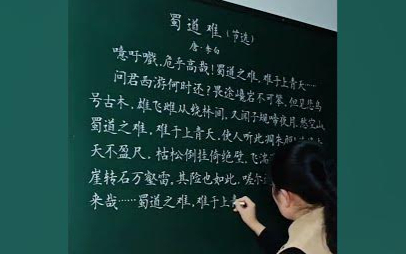 蜀道难（节选）
唐·李白
噫吁嚱,危乎高哉！蜀道之难,难于上青天……
问君西游何时还？畏途巉岩不可攀,但见悲鸟
号古木,雄飞雌从绕林间,又闻子规啼夜月,愁空山
蜀道之难,难于上青天,使人听此凋朱颜
天不盈尺,枯松倒挂倚绝壁,飞湍
崖转石万壑雷,其险也如此,嗟尔
来哉……蜀道之难,难于上青